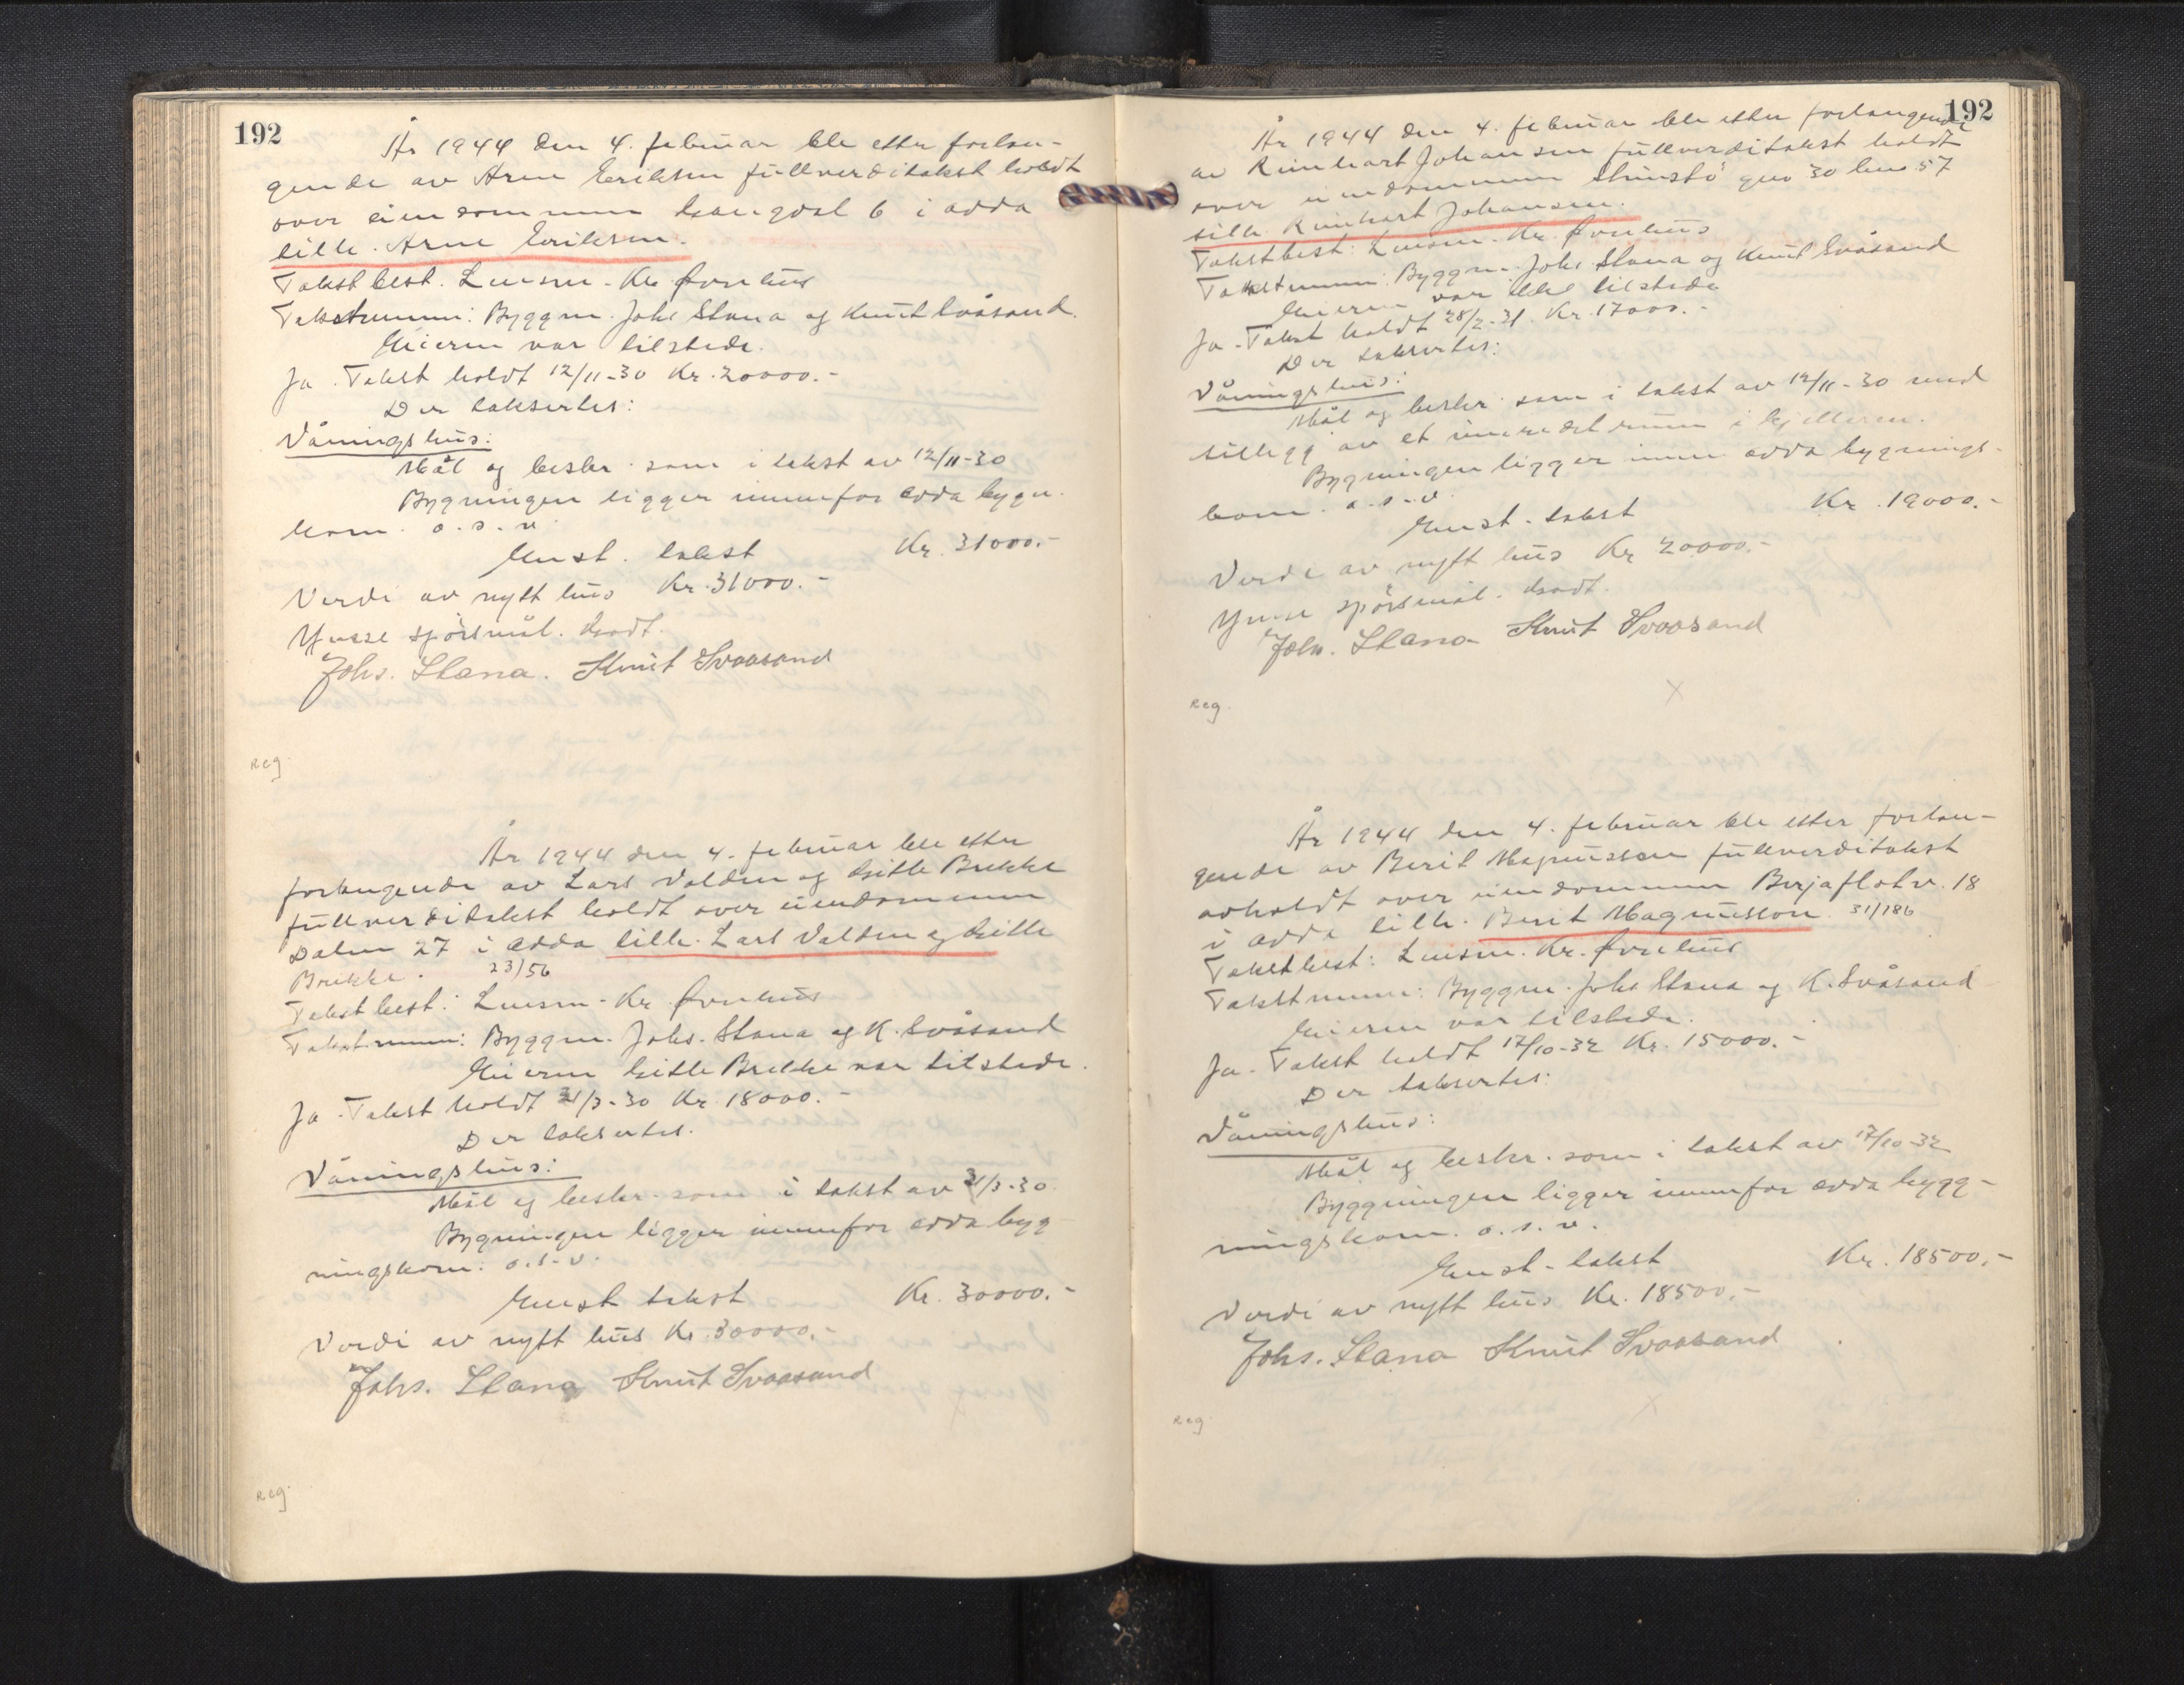 192
År 1944 den 4. februar ble etter forlan-
gende av Arne Eriksen fullverditakst holdt
over eiendommen 6 i Odda
tilh. Arne Eriksen.
Takstbest. Lensm. Kr. Øvrehus
Takstmenn: Byggm. Johs Stana og Knut Svåsand.
Eieren var tilstede.
Ja. Takst holdt 12/11-30 Kr. 20000.-
Der taksertes:
Våningshus:
Mål og beskr. som i takst av 12/11-30
Bygningen ligger innenfor Odda bygn.
kom. o.s.v.
Enst. takst Kr. 31000.-
Verdi av nytt hus Kr. 31000.-
Ymse spörsmål.
Johs. Stana. Knut Svaasand
Reg.
År 1944 den 4. februar ble etter
forlangende av Lars Valden og Gitle Brekke
fullverditakst holdt over eiendommen
Dalen 27 i Odda tilh. Lars Valden og Gitle
Brekke. 23/56
Takstbest: Lensm. Kr. Øvrehus
Takstmenn: Byggm. Johs. Stana og K. Svåsand
Eieren Gitle Brekke var tilstede.
Ja. Takst holdt 21/3-30 Kr. 18000.-
Der taksertes.
Våningshus:
Mål og beskr. som i takst av 21/3-30.
Bygningen ligger innenfor Odda byg
ningskom. o.s.v.
Enst takst Kr. 30000.-
Verdi av nytt hus Kr. 30000.-
Johs. Stana Knut Svaasand
Reg.
192
År 1944 den 4. februar ble etter forlangende
av Reinhart Johansen fullverditakst holdt
over eiendommen gno 30 bno 57
tilh. Reinhart Johansen.
Takstbest: Lensm. Kr. Øvrehus
Takstmenn: Byggm. Johs. Stana og Knut Svåsand
Eieren var ikke tilstede
Ja. Takst holdt 28/2-31. Kr. 17000.-
Der taksertes:
Våningshus:
Mål og beskr. som i takst av 12/11-30 med
tillegg av et innredet rum i kjelleren.
Bygningen ligger innen Odda bygnings-
kom. o.s.v.
Enst. takst Kr. 19000.-
Verdi av nytt hus Kr 20000.-
Ymse spörsmål.
Johs. Stana Knut Svaasand
Reg.
År 1944 den 4. februar ble etter forlan-
gende av Berit Magnussen fullverditakst
avholdt over eiendommen Berjaflotv. 18
i Odda tilh. Berit Magnussen. 31/186
Takstbest: Lensm. Kr. Øvrehus
Takstmenn: Byggm. Johs Stana og K. Svåsand
Eieren var tilstede.
Ja. Takst holdt 17/10-32 Kr. 15000.-
Der taksertes:
Våningshus:
Mål og beskr. som i takst av 17/10-32
Byggningen ligger innenfor Odda bygg-
ningskom. o.s.v.
Enst. takst Kr. 18500.-
Verdi av nytt hus Kr. 18500.-
Johs. Stana Knut Svaasand
Reg.